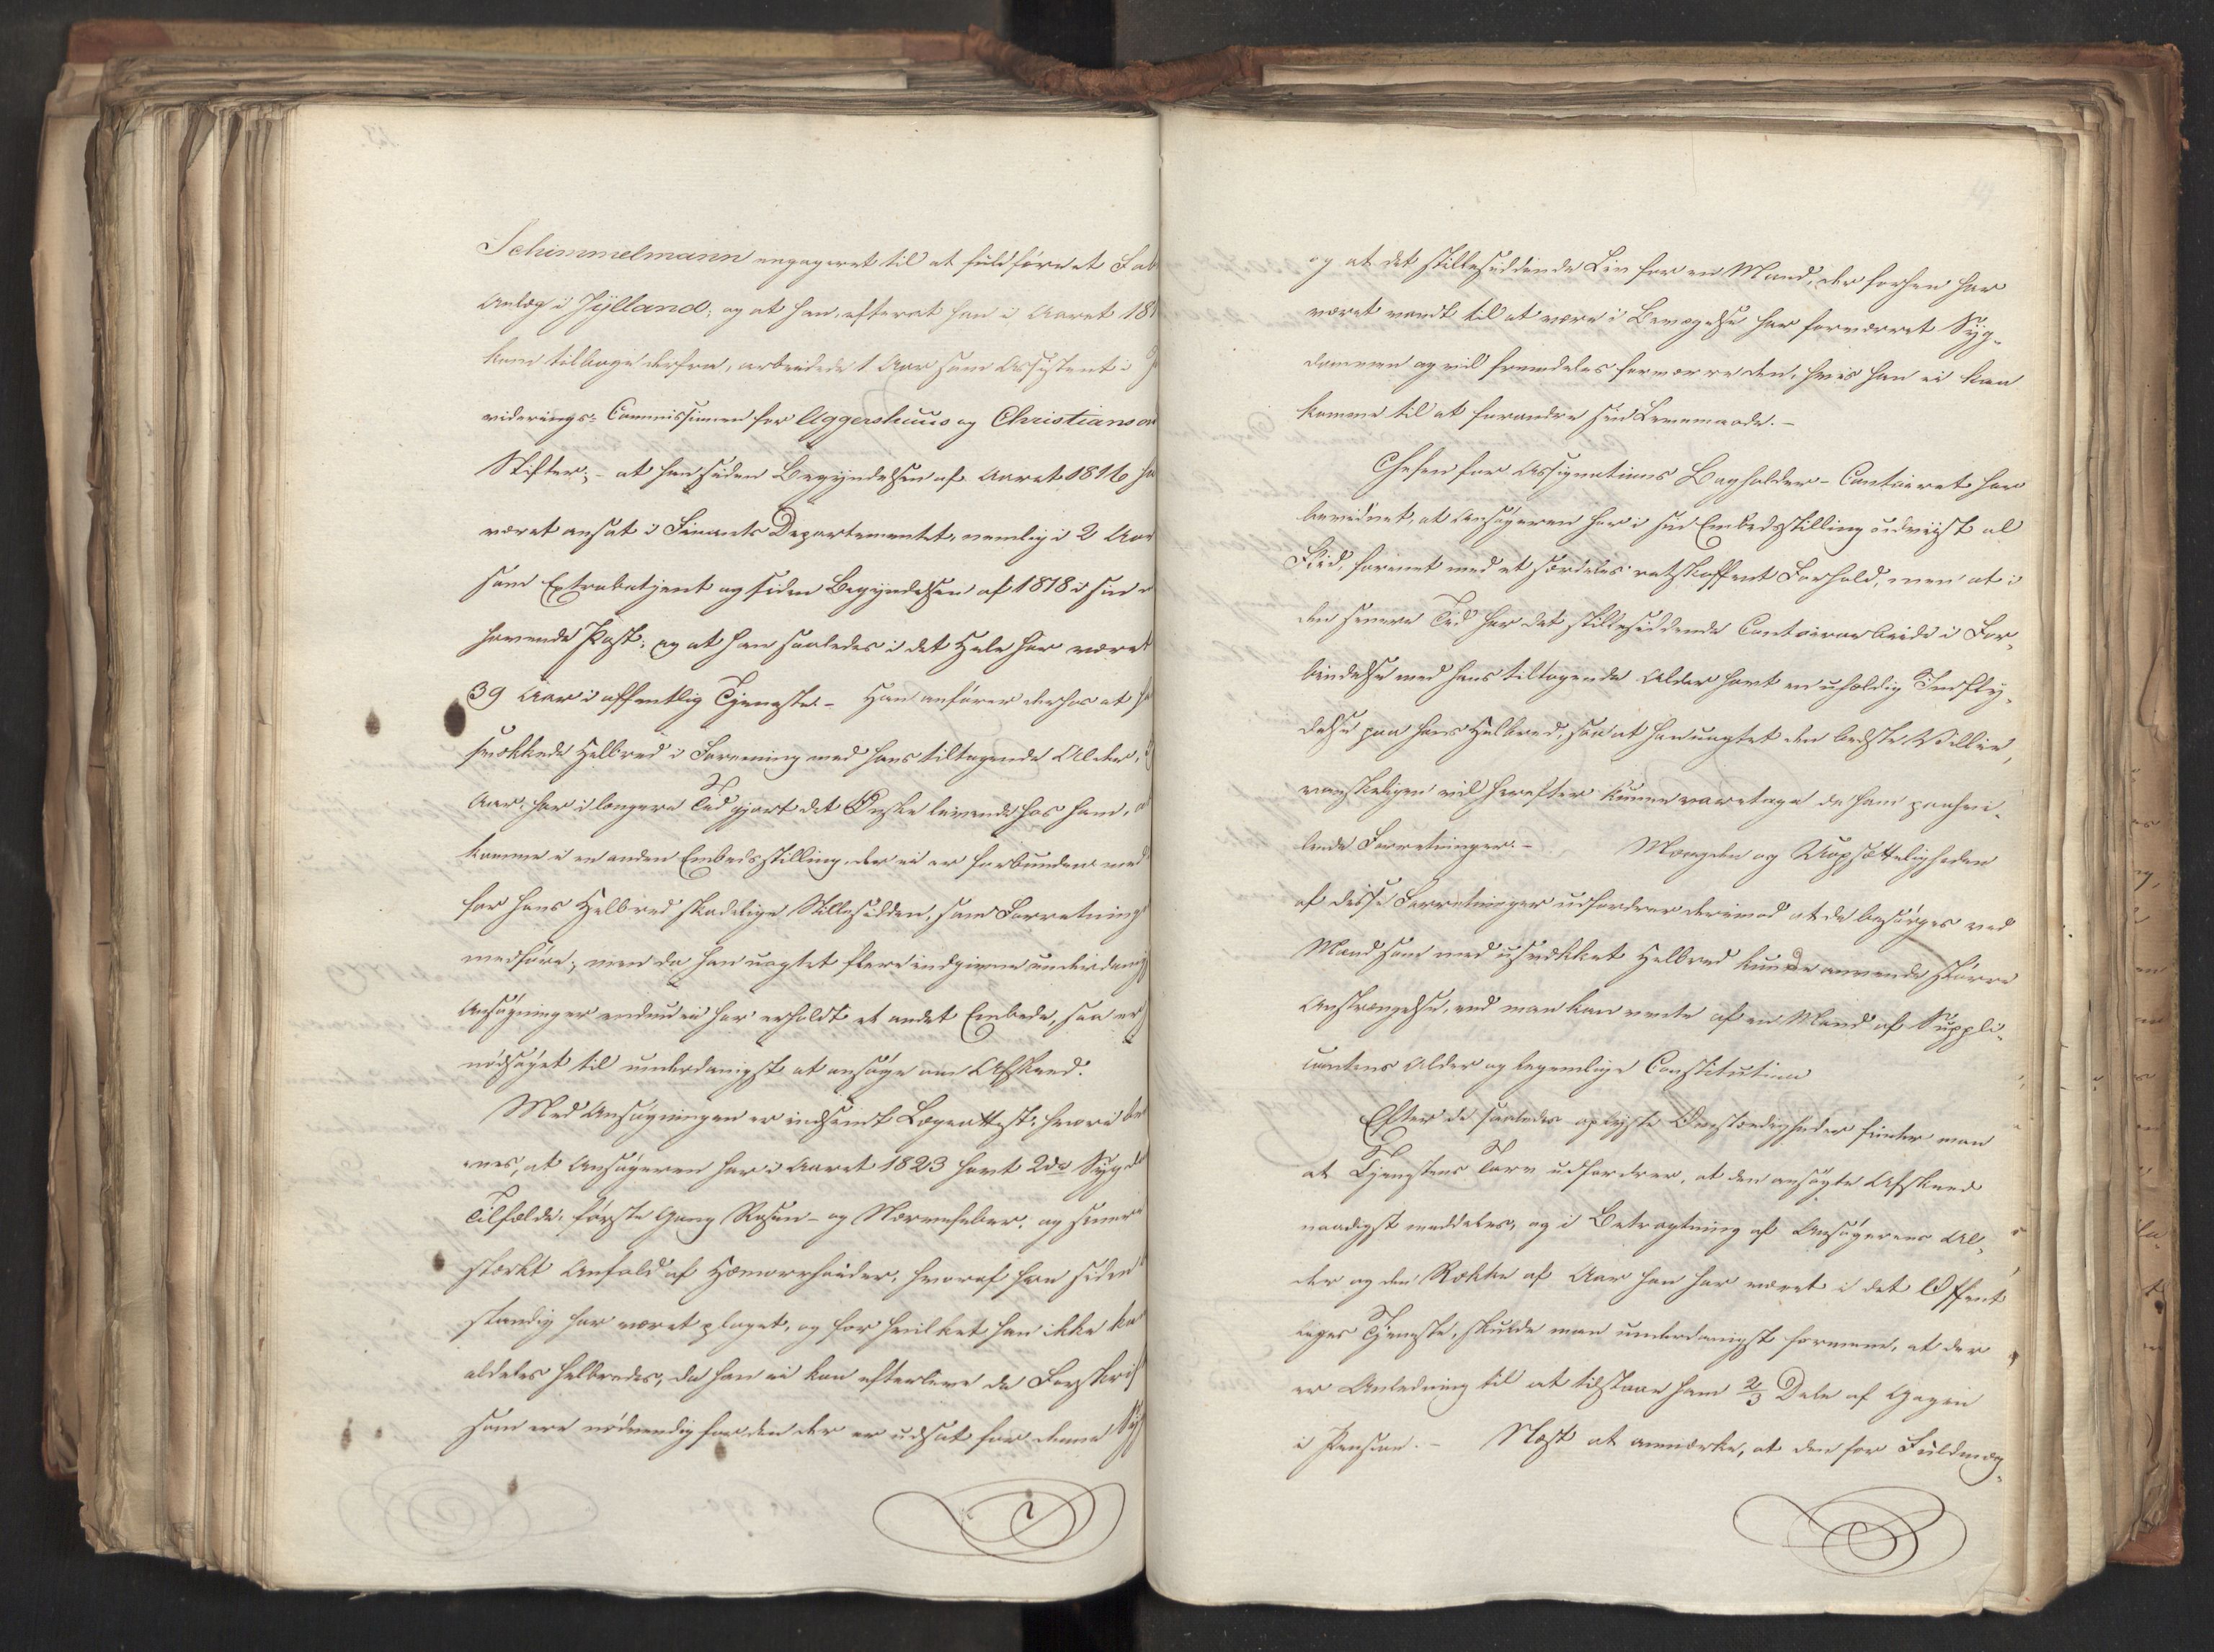 Schimmelmann engageret til at fuldføre et Fab
Anlæg i Jylland; og at han, efterat han i Aaret 18
kom tilbage derfra, arbeidede 1 Aar som Assistent i
viderings-Commissionen for Aggershuus og Christians
Stifter; - at han siden Begyndelsen af Aaret 1816 ha
været ansat i Finants Departementet, nemlig i 2 Aar
som Extrabetjent og siden Begyndelsen af 1818 i sin
havende Post; og at han saaledes i det Hele har været
39 Aar i offentlig Tjeneste. - Han anfører derhos at
svækkede Helbred i Forening med hans tiltagende Alder,
Aar, har i længere Tid gjort det Ønske levende hos ham, a
komme i en anden Embedsstilling, der ei er forbunden med
for hans Helbred skadelige Stillesidden, som Forretning
medføre; men da han uagtet flere indgivne underdanig
Ansøgninger endnu ei har erholdt et andet Embede, saa er
nødsaget til underdanigst at ansøge om Afskeed.
Med Ansøgningen er indsendt Lægeattest, hvori be
nes, at Ansøgeren har i Aaret 1823 havt 2de Sygd
Tilfælde, første Gang Rosen- og Nervefeber, og senere
stærkt Anfald af Hæmorrhoider, hvoraf han siden
stændig har været plaget, og for hvilket han ikke ka
aldeles helbredes, da han ei kan efterleve de Forskrif
som ere nødvendig for den der er udsat for denne Syg
og at det stillesiddende Liv for en Mand, der forhen har
været vandt til at være i Bevægelse har forværret Syg-
dommen og vil fremdeles forværre den, hvis han ei kan
komme til at forandre sin Levemaade. -
Chefen for Assignations Bogholder-Contoiret har
bevidnet, at Ansøgeren har i sin Embedsstilling udviist al
Flid, forenet med et særdeles retskaffent Forhold, men at i
den senere Tid har det stillesiddende Contoirarbeide i For-
bindelse med hans tiltagende Alder havt en uheldig Indfly-
delse paa hans Helbred, saa at han uagtet den bedste Villie,
vanskeligen vil herefter kunne varetage de ham paahvi-
lende Forretninger. - Mængden og Uopsætteligheden
af disse Forretninger udfordrer derimod at de besørges ved
Mand som med usvækket Helbred kunde anvende større
Anstrængelse, end man kan vente af en Mand af Suppli-
cantens Alder og legemlige Constitution
Efter de saaledes oplyste Omstændigheder finder man
at Tjenestens Tarv udfordrer, at den ansøgte Afskeed
naadigst meddeles, og i Betragtning af Ansøgerens Al-
der og den Række af Aar han har været i det Offent
liges Tjeneste, skulde man underdanigst formene, at der
er Anledning til at tilstaae ham 2/3 Dele af Gagen
i Pension. - Næst at anmærke, at den for Fuldmæg-